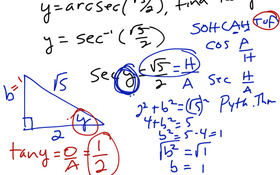 y = arcsec(√5/2), find tan y
SOH CAH TOA
y = sec⁻¹(√5/2)
cos A/H
sec y = √5/2 = H/A
sec H/A
b=1
√5
2
y
2² + b² = (√5)² Pyth. Thm
4 + b² = 5
b² = 5-4 = 1
√b² = √1
b = 1
tan y = O/A = 1/2